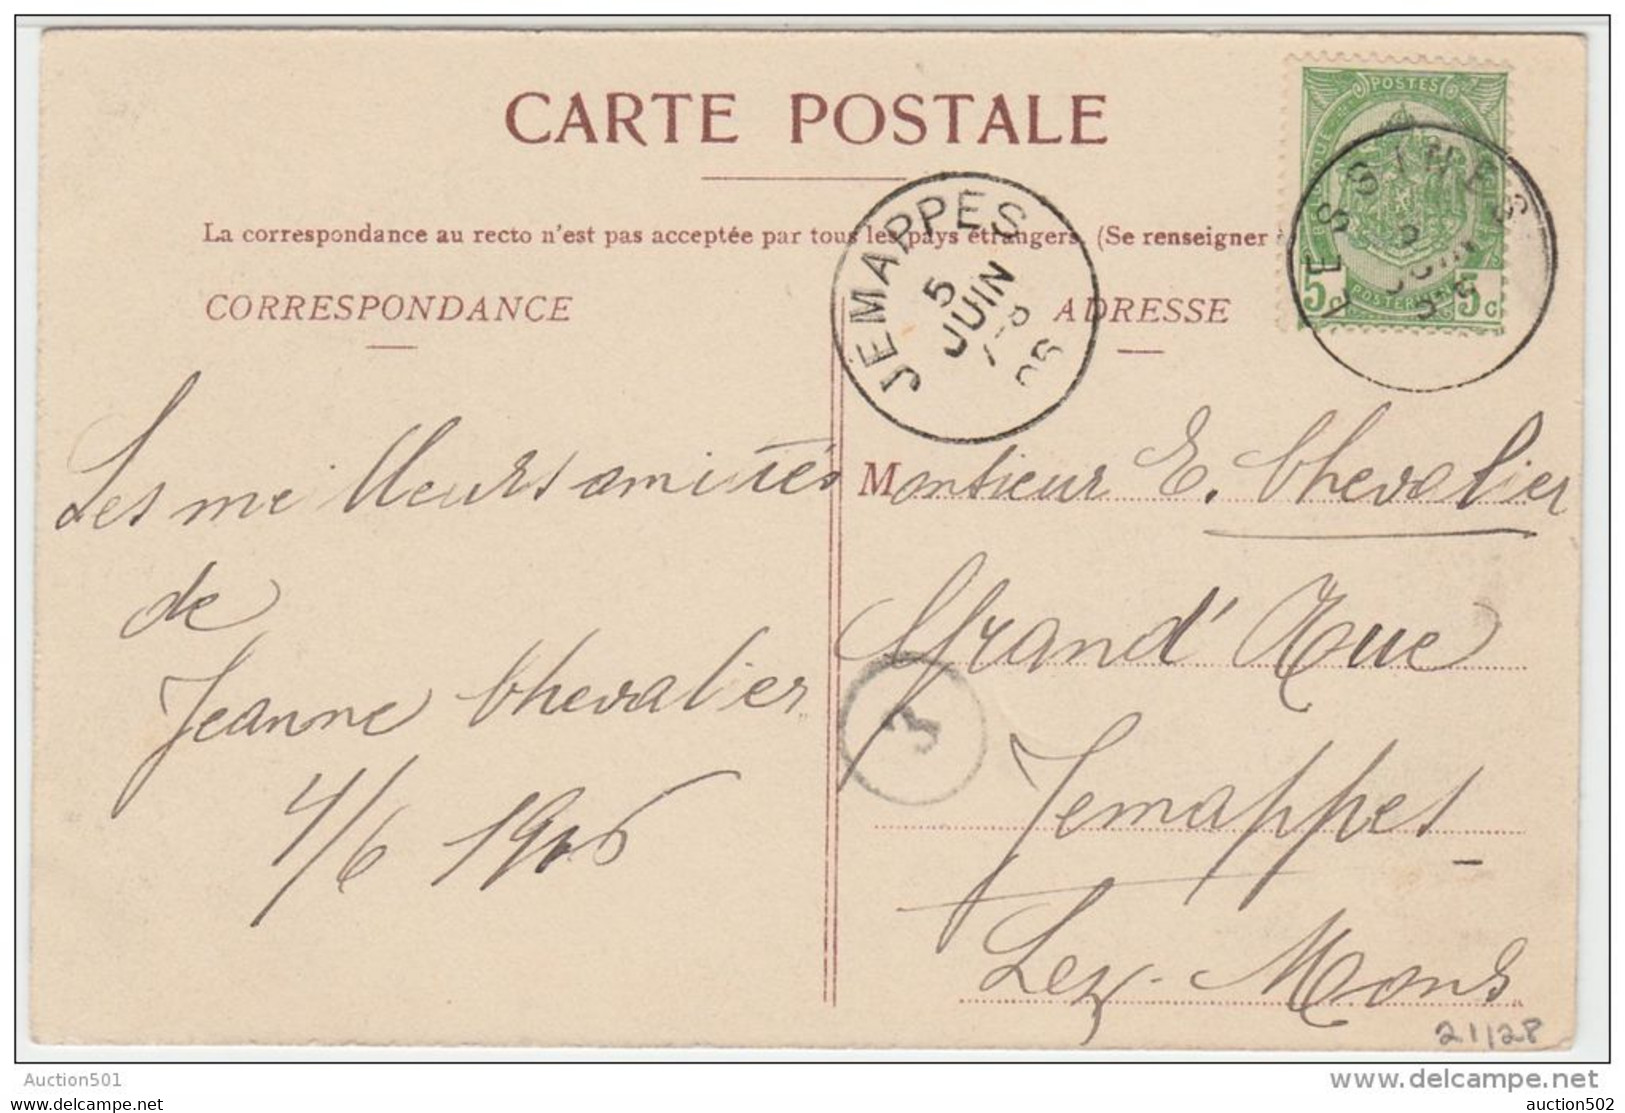 CARTE POSTALE
La correspondance au recto n'est pas acceptée par tous les pays étrangers. (Se renseigner
CORRESPONDANCE
ADRESSE
JEMAPPES
5
JUIN
06
POSTES
5c
5c
LESSINES
Les meilleurs amitiés
de
Jeanne Chevalier
4/6 1906
Monsieur E. Chevalier
Grand' Rue
3
Jemappes
Lez-Mons
21/28
Auction501
www.delcampe.net
auction501.com
auction502